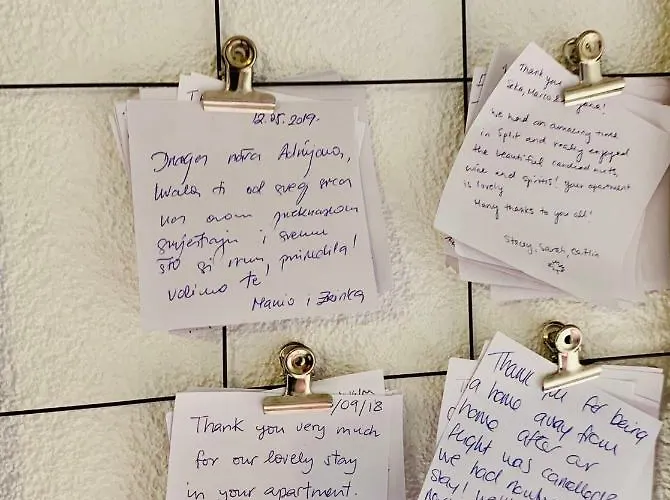 12.05.2019.
Draga naša Adrijana,
hvala ti od sveg srca
na ovom prekrasnom
smještaju i svemu
što si nam priredila!
volimo te,
Mario i Zrinka
Thank you
Seka, Marco &
We had an amazing time
in Split and really enjoyed
the beautiful candied nuts,
wine and spirits! your apartment
is lovely
Many thanks to you all!
Stacey, Sarah, Caitlin
/09/18
Thank you very much
for our lovely stay
in your apartment.
Thank for being
a home away from
home after our
flight was cancelled
we had
stay!